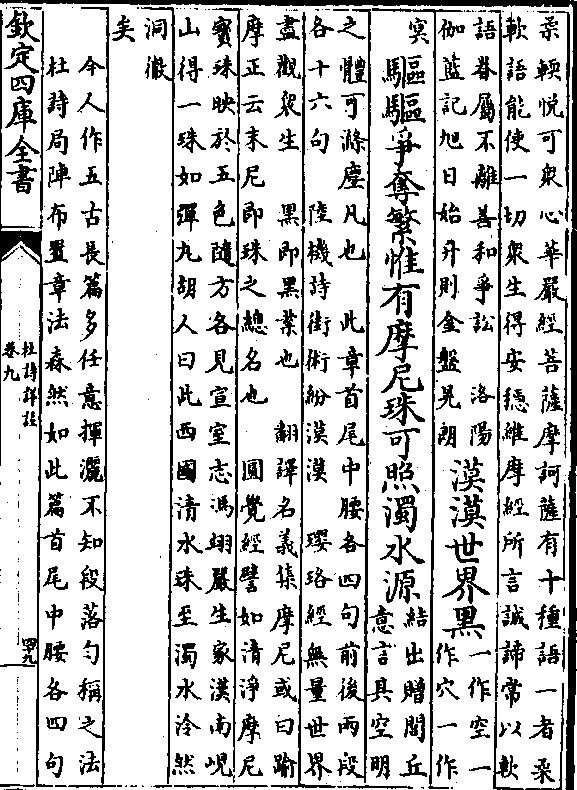 柔輭悅可衆心華嚴經菩薩摩訶薩有十種語一者柔
軟語能使一切衆生得安穏維摩經所言誠諦常以軟
語眷屬不離善和爭訟　洛陽
伽藍記旭日始升則金盤晃朗
漠漠世界黒
一作空一
作穴一作
㝠
驅驅爭奪繁惟有摩尼珠可照濁水源
結出贈閭丘
意言具空明
之體可滌塵凡也　此章首尾中腰各四句前後兩段
各十六句　陸機詩街術紛漠漠　瓔珞經無量世界
盡觀衆生　黒即黒業也　翻譯名義集摩尼或曰踰
摩正云末尼即珠之總名也　圓覺經譬如清淨摩尼
寳珠映於五色隨方各見宣室志馮翊嚴生家漢南峴
山得一珠如彈丸胡人曰此西國清水珠至濁水泠然
洞徹
矣
今人作五古長篇多任意揮灑不知段落勻稱之法
杜詩局陣布置章法森然如此篇首尾中腰各四句
欽定四庫全書
杜詩詳註
卷九
四九